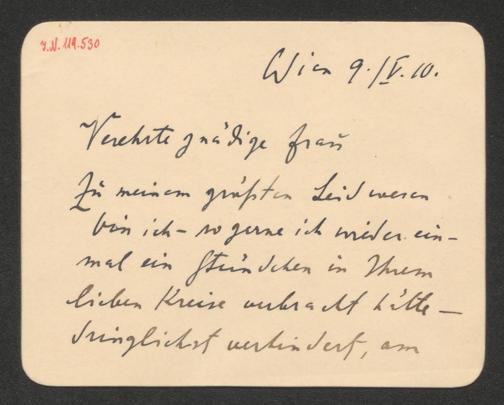 J.N. 119.530
Wien 9./V.10.
Verehrte gnädige Frau
Zu meinem größten Leidwesen
bin ich – so gerne ich wieder ein-
mal ein Stündchen in Ihrem
lieben Kreise verbracht hätte –
dringlichst verhindert, am